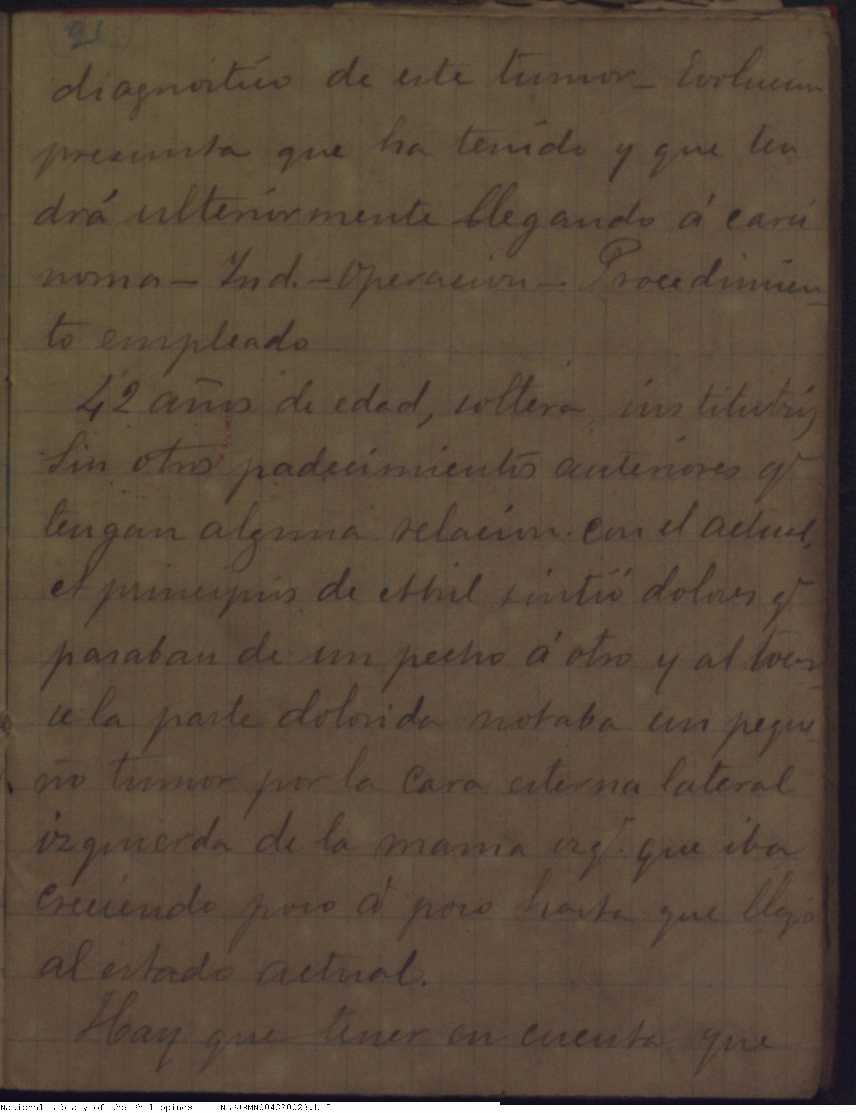 21
diagnostico de este tumor_ Evolucion
presunta que ha tenido y que ten
drá ulteriormente llegando á carci
noma_ Ind._ Operacion_ Procedimien_
to empleado
42 años de edad, soltera, institutriz
Sin otros padecimientos anteriores q.
tengan alguna relacion con el actual,
á principios de Abril sintió dolores q.
pasaban de un pecho á otro y al tocar_
se la parte dolorida notaba un peque
ño tumor por la cara esterna lateral
izquierda de la mama izq. que iba
creciendo poco á poco hasta que llegó
al estado actual.
Hay que tener en cuenta que
National Library of the Philippines